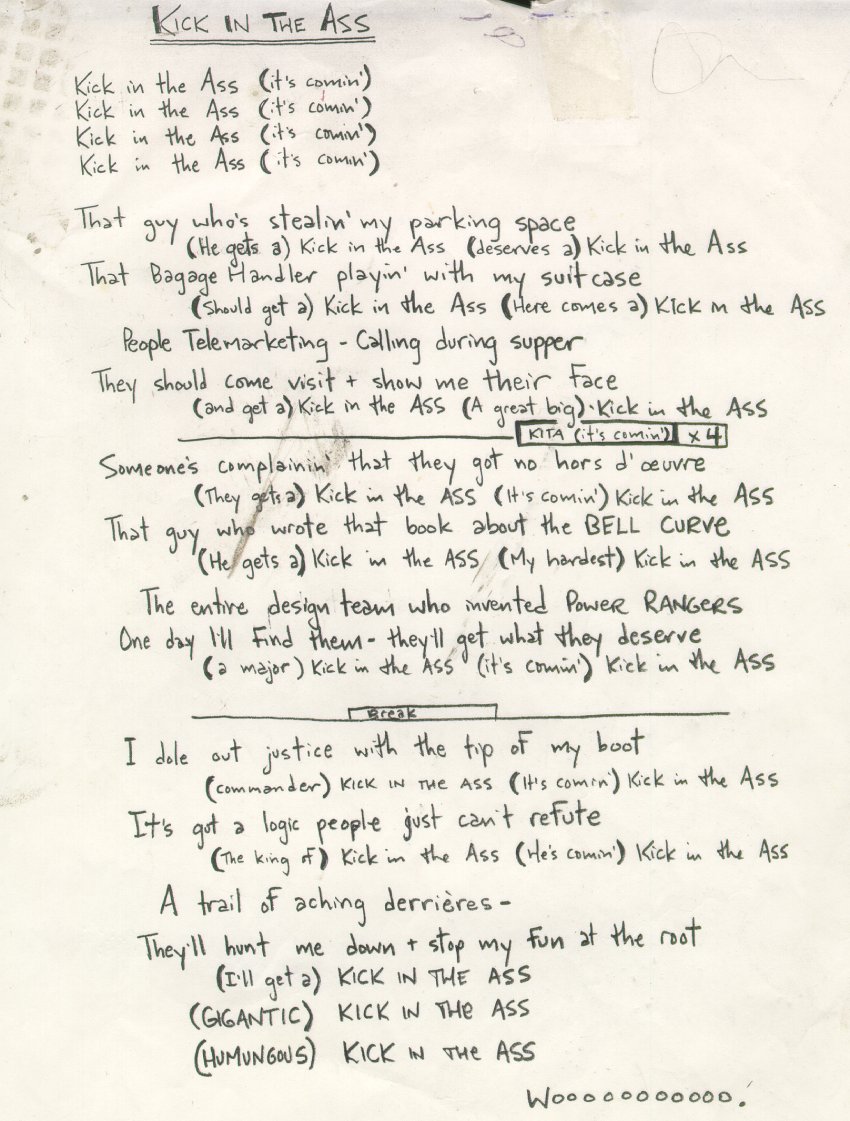 KICK IN THE ASS
Kick in the Ass (it's comin')
Kick in the Ass (it's comin')
Kick in the Ass (it's comin')
Kick in the Ass (it's comin')
That guy who's stealin' my parking space
(He gets a) Kick in the Ass (deserves a) Kick in the Ass
That Bagage Handler playin' with my suitcase
(Should get a) Kick in the Ass (Here comes a) Kick in the Ass
People Telemarketing - Calling during supper
They should come visit + show me their face
(and get a) Kick in the Ass (A great big) Kick in the Ass
KITA (it's comin') x 4
Someone's complainin' that they got no hors d'œuvre
(They gets a) Kick in the Ass (It's comin') Kick in the Ass
That guy who wrote that book about the BELL CURVE
(He gets a) Kick in the Ass (My hardest) Kick in the Ass
The entire design team who invented POWER RANGERS
One day I'll find them - they'll get what they deserve
(a major) Kick in the Ass (it's comin') Kick in the Ass
Break
I dole out justice with the tip of my boot
(commander) KICK IN THE ASS (It's comin') Kick in the Ass
It's got a logic people just can't refute
(The king of) Kick in the Ass (He's comin') Kick in the Ass
A trail of aching derrières -
They'll hunt me down + stop my fun at the root
(I'll get a) KICK IN THE ASS
(GIGANTIC) KICK IN THE ASS
(HUMUNGOUS) KICK IN THE ASS
Wooooooooooo.